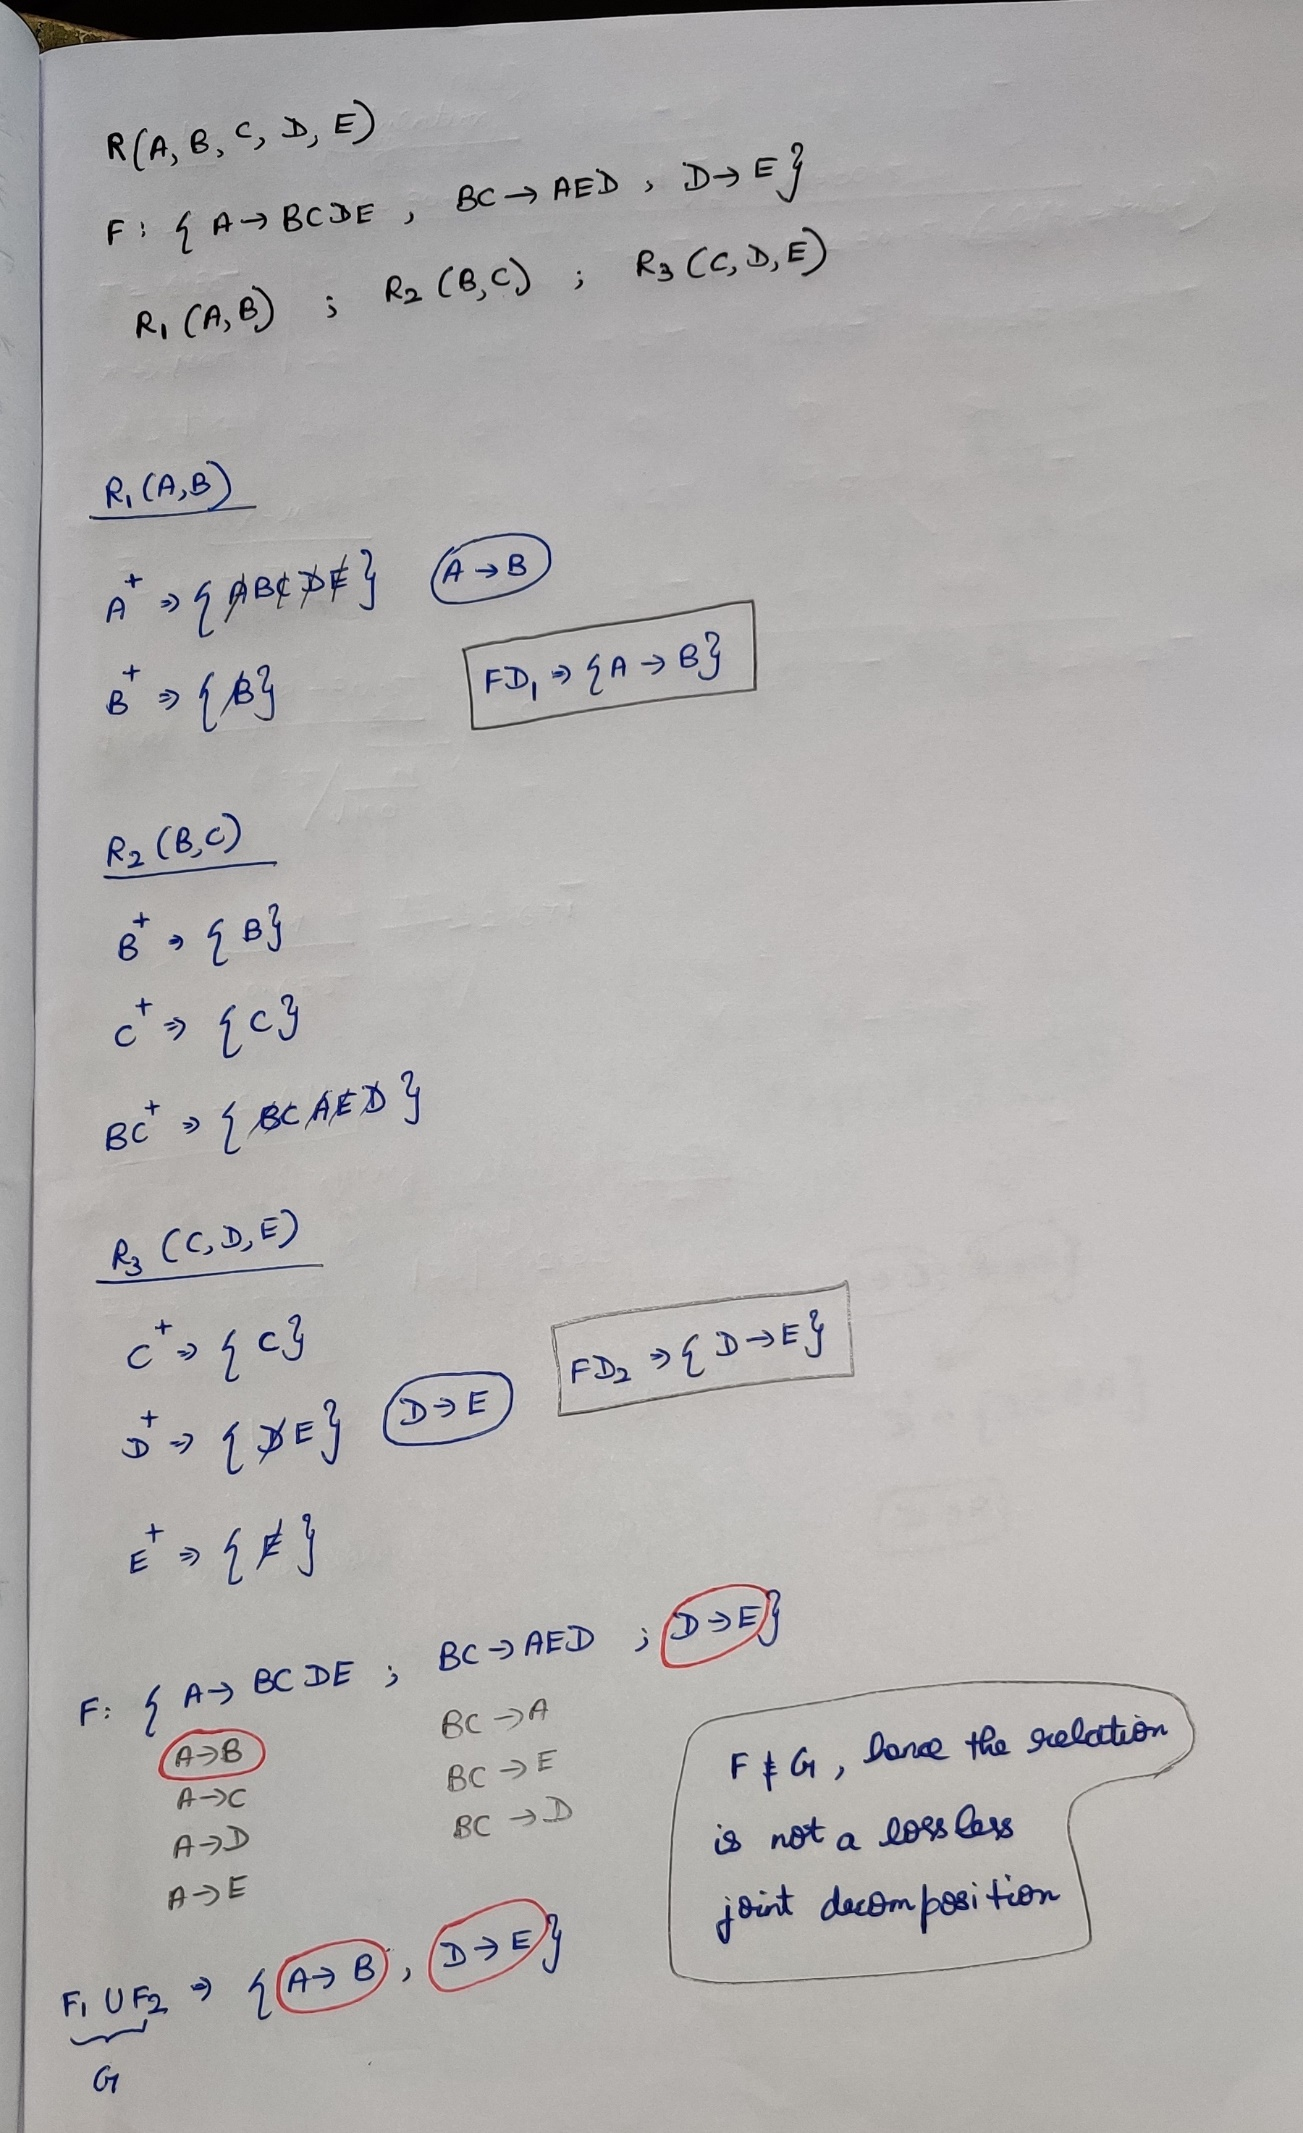 R(A, B, C, D, E)
F: { A → BCDE , BC → AED , D → E }
R₁ (A,B) ; R₂ (B,C) ; R₃ (C, D, E)
R₁ (A,B)
A⁺ ⇒ { ABCDE } A → B
B⁺ ⇒ { B } FD₁ ⇒ { A → B }
R₂ (B,C)
B⁺ ⇒ { B }
C⁺ ⇒ { C }
BC⁺ ⇒ { BCAED }
R₃ (C, D, E)
C⁺ ⇒ { C } FD₂ ⇒ { D → E }
D⁺ ⇒ { DE } D → E
E⁺ ⇒ { E }
F: { A → BCDE ; BC → AED ; D → E }
A → B BC → A
A → C BC → E
A → D BC → D
A → E
F ≢ G, hence the relation
is not a lossless
joint decomposition
F₁ ∪ F₂ ⇒ { A → B , D → E }
G